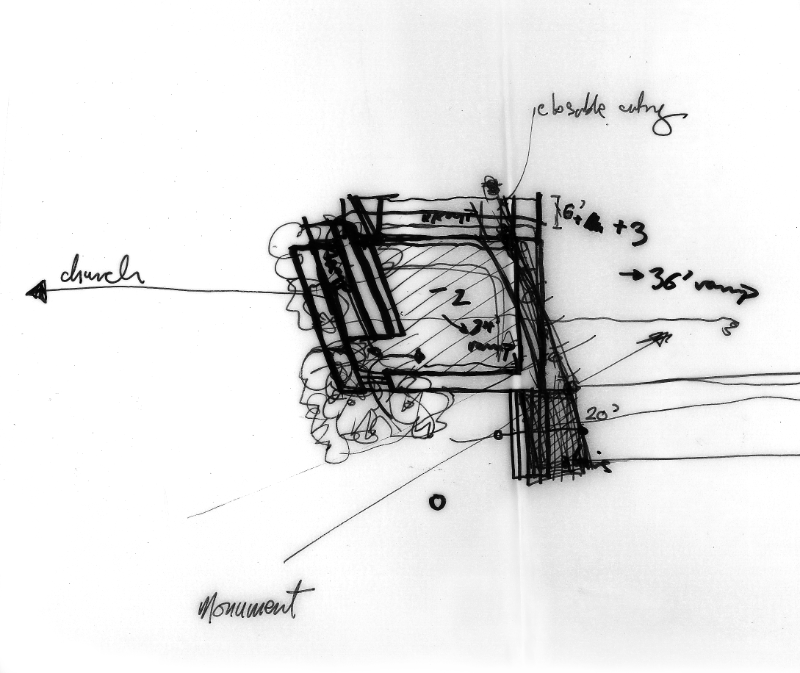 closable entry
6'
+3
church
→ 36' ramp
- 2
24'
ramp
20'
Monument